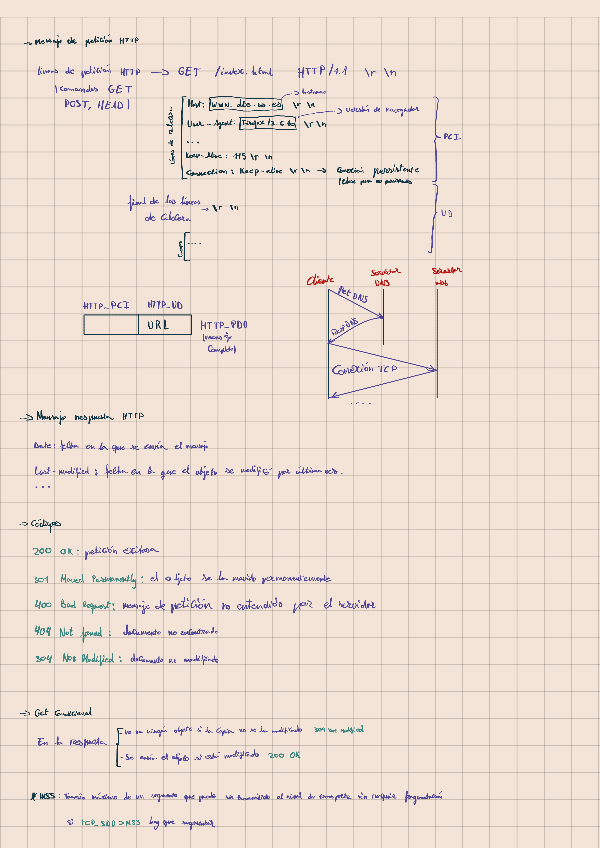 → Mensaje de petición HTTP
líneas de petición HTTP → GET /index.html HTTP/1.1 \r \n
(comandos GET
POST, HEAD)
Host: \r \n
User-Agent: \r \n → versión de navegador
...
Keep-Alive: 115 \r \n
Connection: Keep-alive \r \n → Conexión persistente
PCI
final de las líneas
de cabecera → \r \n
UD
....
Cliente
Servidor
DNS
Servidor
Web
get DNS
HTTP_PCI HTTP_UD
URL
HTTP_PDU
(mensaje
completo)
Conexión TCP
....
→ Mensaje respuesta HTTP
Date: fecha en la que se envía el mensaje
Last-modified: fecha en la que el objeto se modificó por última vez.
...
→ Códigos
200 OK: petición exitosa
301 Moved Permanently: el objeto se ha movido permanentemente
400 Bad Request: mensaje de petición no entendido por el servidor
404 Not found: documento no encontrado
304 Not Modified: documento no modificado
→ Get Condicional
En la respuesta
- no ningún objeto si la copia no se ha modificado 304 not modified
- Se envía el objeto si está modificado 200 OK
* MSS: Tamaño máximo de un segmento que puede ser transmitido al nivel de transporte sin requerir fragmentación
si TCP_SDU > MSS hay que segmentar